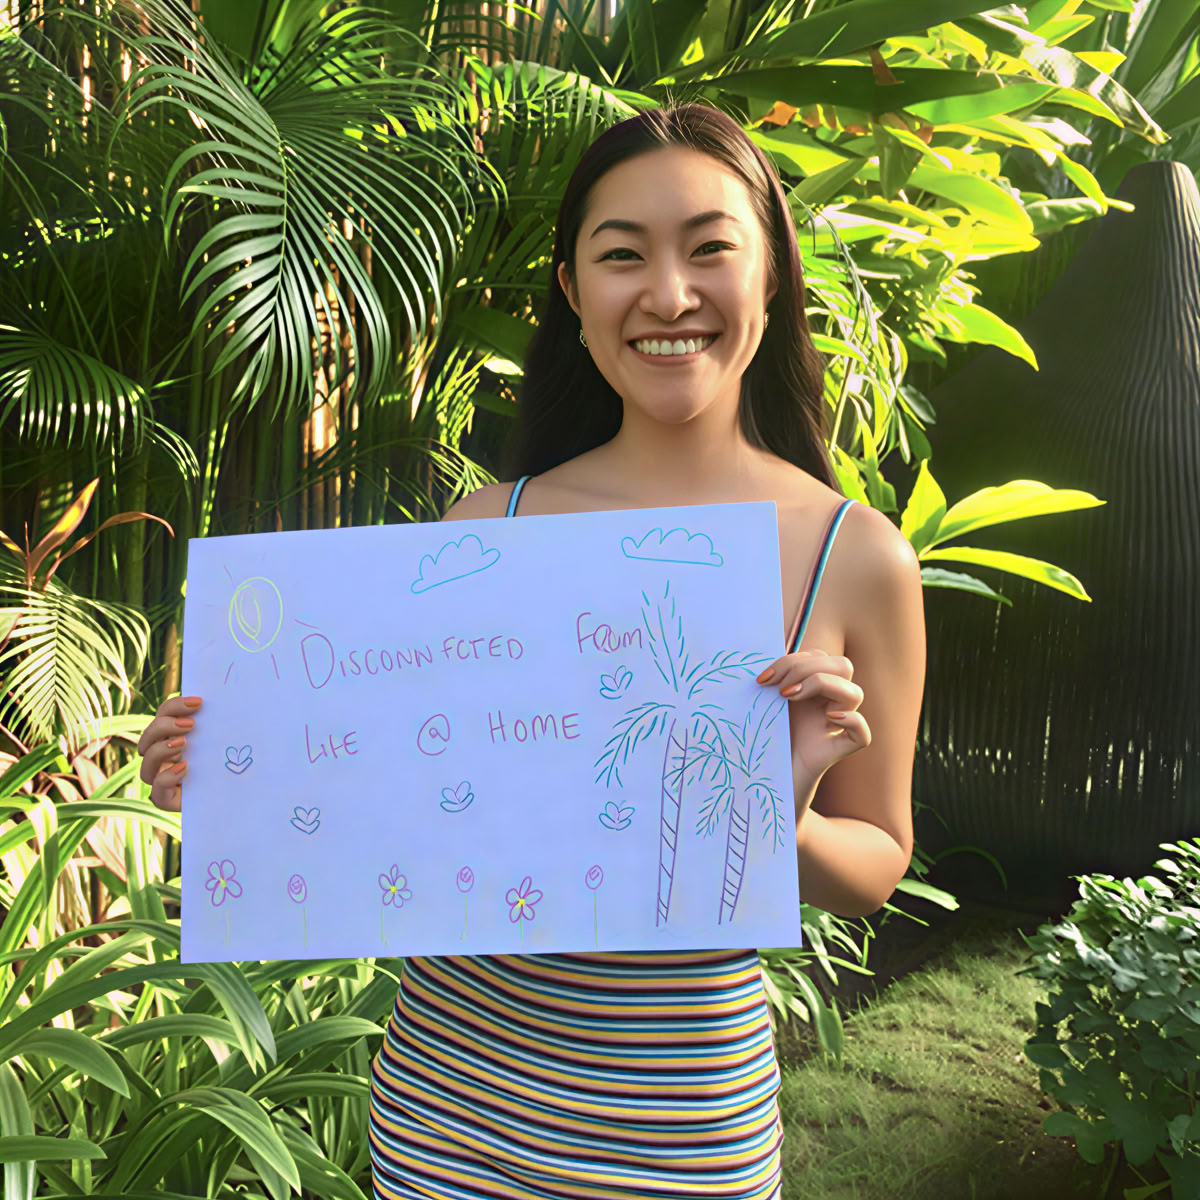 DISCONNECTED FROM
LIFE @ HOME